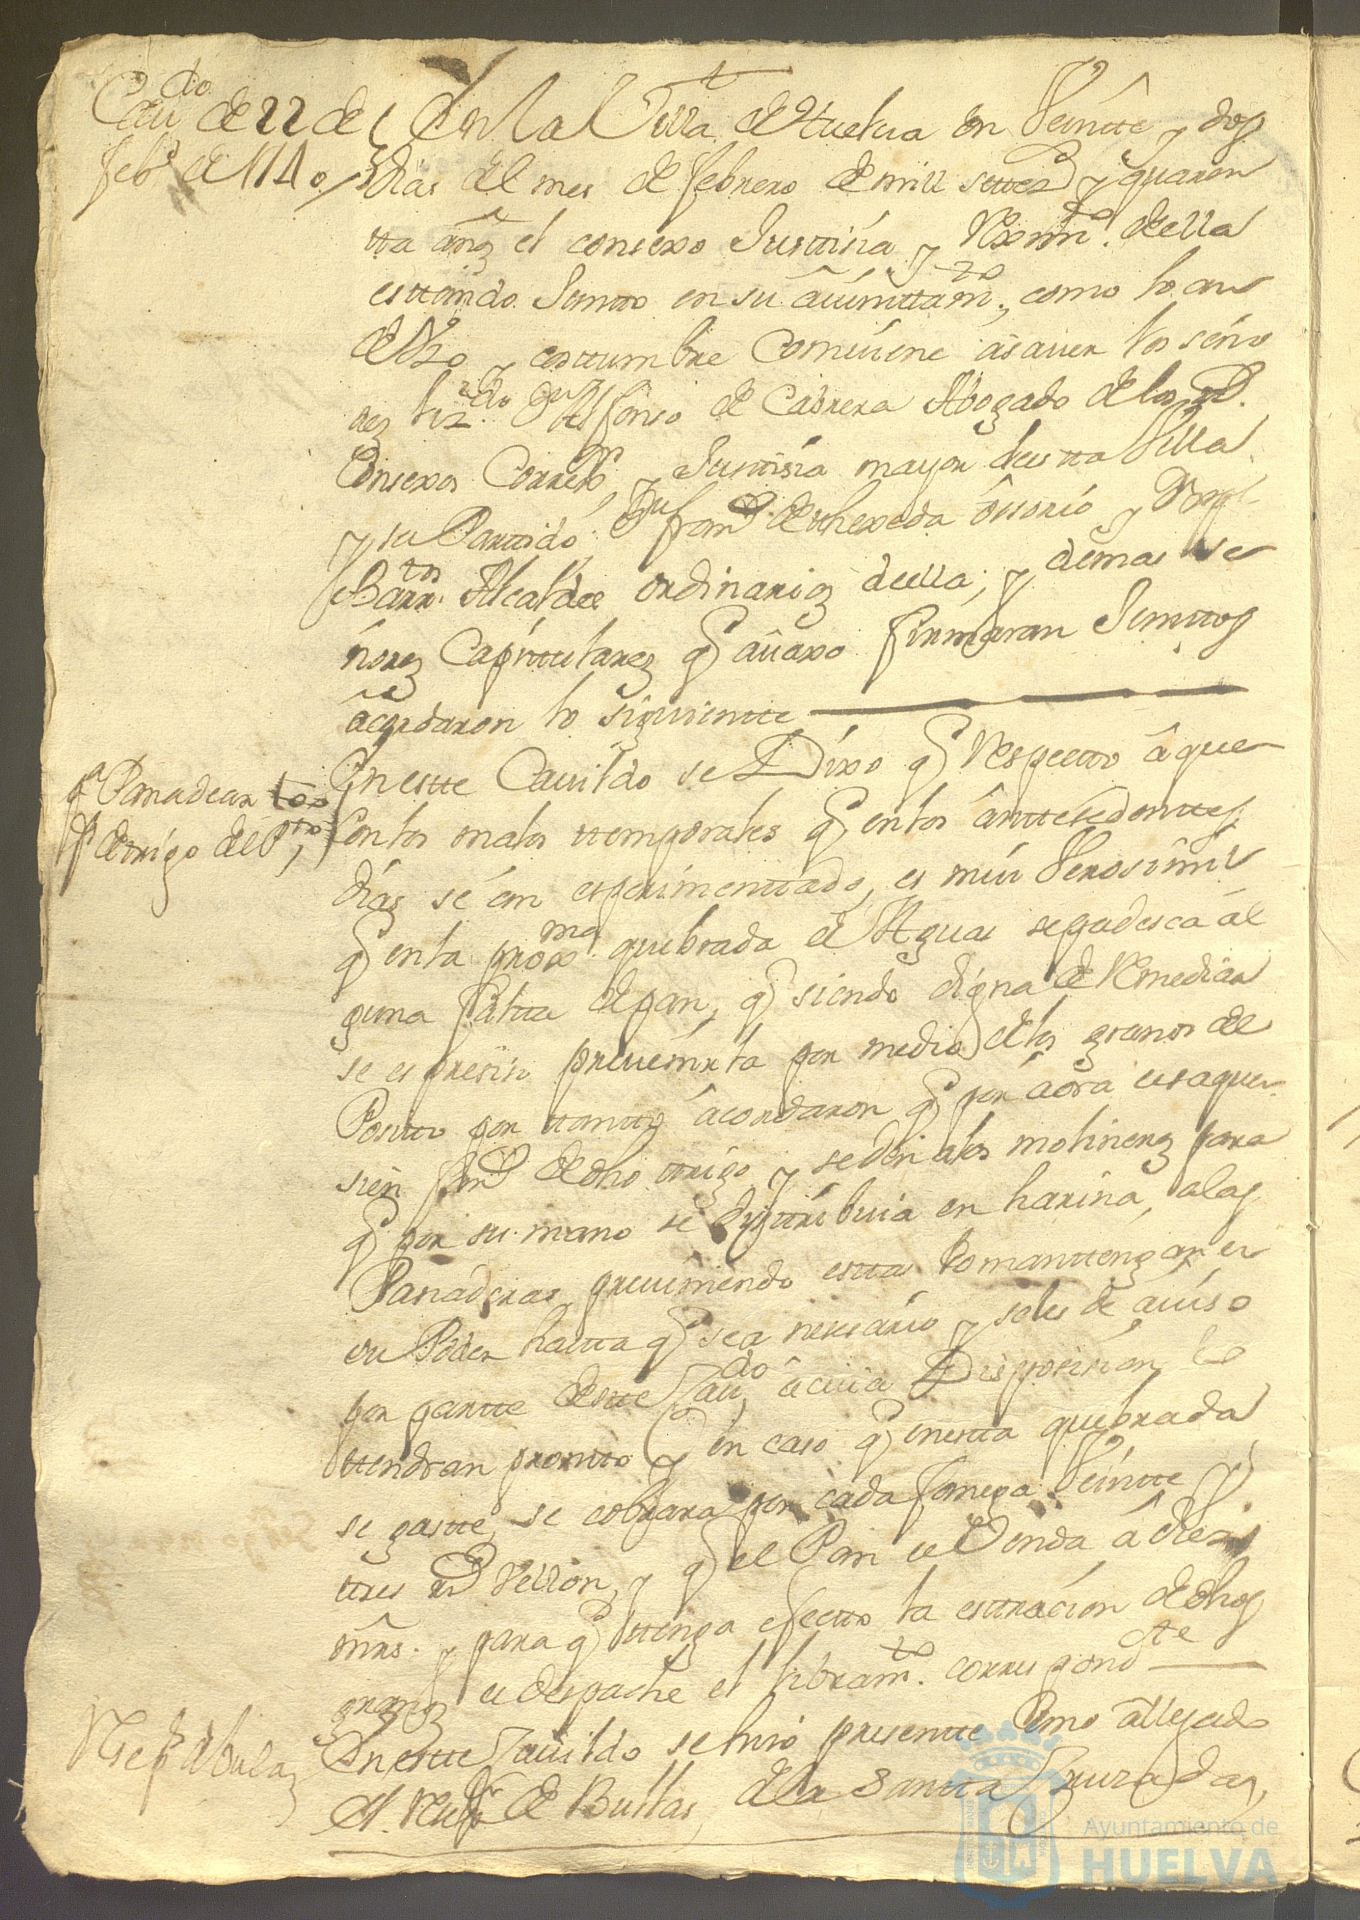 Cavdo de 22 de
febº de 1740
En la Villa de Huelva en Veintte y dos
días del mes de febrero de mill settezs y quaren
tta añs el consexo Justtisia y Reximto della
esttando Juntto en su aiuinttamto como lo an
de uzo y costtumbre Combiene asaver los seño
res lizdo Dn Alfonso de Cabrera Abogado de los Rs
Consexos Correxor y Justtisia mayor destta Villa
y su Parttido Dn franco de thexeda ôssorio y
Barrtos Alcaldes ordinarios della, y demas se
ñores Capittulares q avaxo firmaran Junttos
acordaron lo siguientte
En estte Cavildo se Dixo q Respectto â que
con los malos ttemporales q en los anttesedenttes
días se an esperimenttado, es mui Verosimil
q en la proxma quebrada de Agua se padesca al
guna faltta de pan, q siendo digna de Remediar
se es presiso prevenirla por medio de los granos del
Positto por ttantto acordaron q por aora se saquen
sien fans de dho ttrigo, y se den a los molineros para
q por su mano se disttribuia en harina, a las
Panaderas previniendo esttas lo manttengan en
su Poder hastta q sea nesesario y se les de aviso
por partte de estte Cavdo, a cuia Disposision lo
ttendran prontto y en caso q en estta quebrada
se gastte, se cobrara por cada fanega Veintte y
ttres rs vellon, y q el Pan se Venda â diez
mrs. y para q ttenga efectto la esttracion de dhos
granos se despache el libramto. correspondte
En estte Cavildo se hizo presentte Como a llegado
el de Bullas de la Santta Cruzada,
pa Panadear
trigo del Ptto
Ayuntamiento de
HUELVA